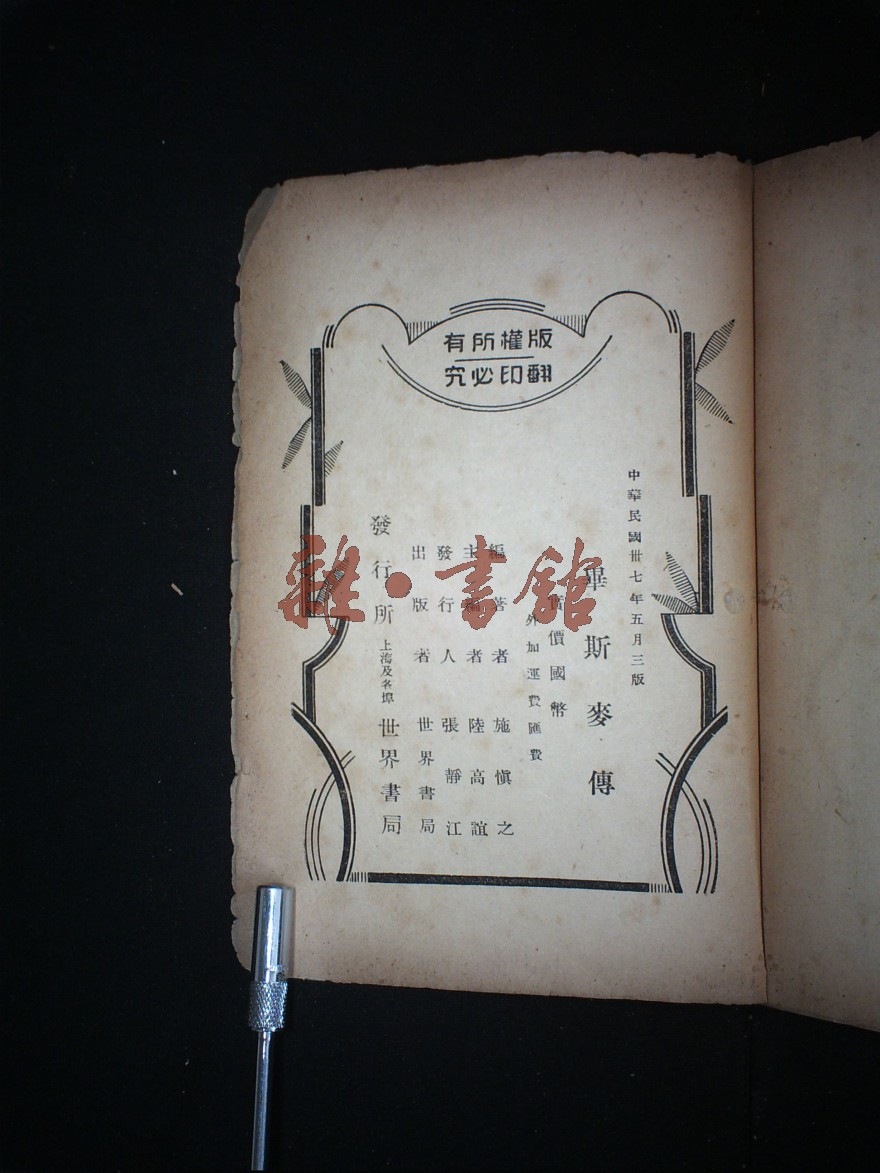 版權所有
翻印必究
中華民國卅七年五月三版
畢斯麥傳
實價國幣
外加運費匯費
編著者 施愼之
主編者 陸高誼
發行人 張靜江
出版者 世界書局
發行所 上海及各埠 世界書局
雜·書館